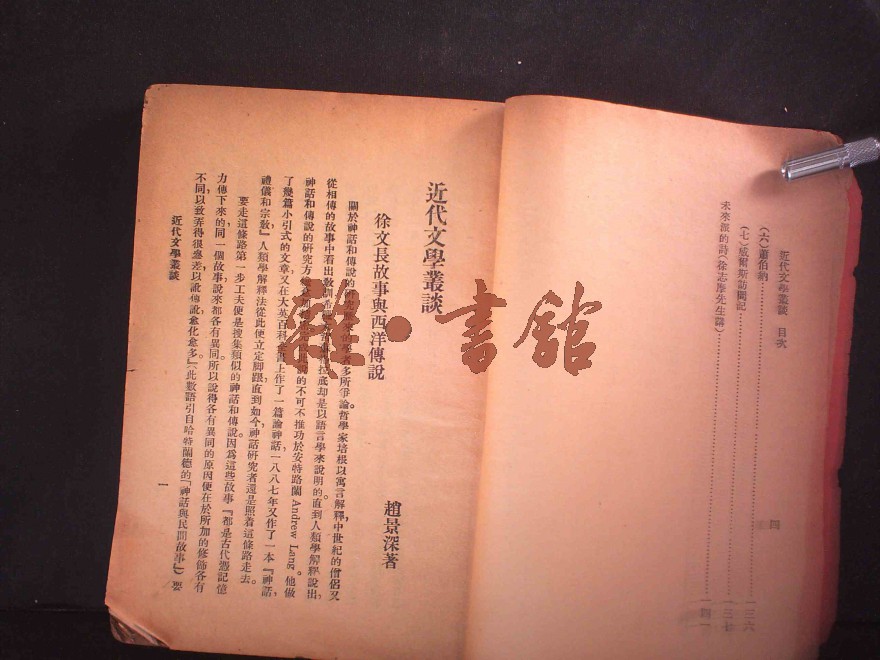 近代文學叢談 目次
(六)蕭伯納……一三六
(七)威爾斯訪問記……一三七
未來派的詩(徐志摩先生講)……一四一
四
近代文學叢談
徐文長故事與西洋傳說
趙景深著
關於神話和傳說的研究 的學者多所爭論。哲學家培根以寓言解釋,中世紀的僧侶又
從相傳的故事中看出教訓 底却是以語言學來說明的。直到人類學解釋說出,
神話和傳說的研究方 的不可不推功於安特路闌 Andrew Lang。他做
了幾篇小引式的文章,又在大英百科 上作了一篇論神話,一八八七年又作了一本『神話,
禮儀和宗教』人類學解釋法從此便立定脚跟,直到如今,神話研究者還是照着這條路走去。
要走這條路,第一步工夫便是搜集類似的神話和傳說。因為這些故事『都是古代憑記憶
力傳下來的,同一個故事,說來都各有異同。所以說得各有異同的原因,便在於所加的修飾各有
不同,以致弄得很參差,以訛傳訛,愈化愈多。』(此數語引自哈特蘭德的「神話與民間故事」)要
近代文學叢談
一
書館